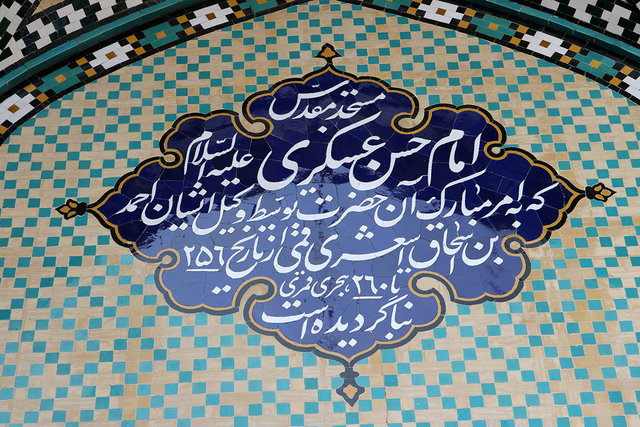 مسجد مقدس
امام حسن عسکری علیه السلام
که به امر مبارک آن حضرت توسط وکیل ایشان احمد
بن اسحاق اشعری قمی از تاریخ ۲۵۶
تا ۲۶۰ هجری قمری
بنا گردیده است